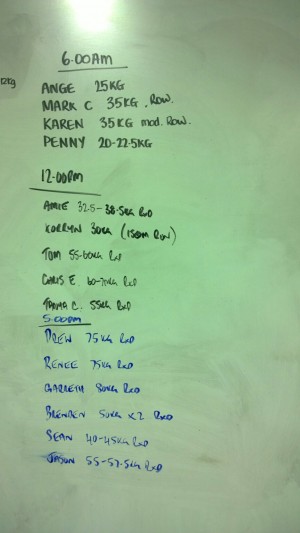 6.00AM
12kg
ANGE 25KG
MARK C 35KG . ROW.
KAREN 35KG mod. ROW.
PENNY 20-22.5KG
12.00PM
AMIE 32.5-38.5KG RxD
KORRYN 30KG (150m RUN)
TOM 55-60KG RxD
CHRIS E. 60-70KG RxD
C. 55KG RxD
5.00PM
DREW 75KG RxD
RENEE 75KG RxD
GARRETH 80KG RxD
BRENDEN 50KG x2 RxD
SEAN 40-45KG RxD
JASON 55-57.5KG RxD